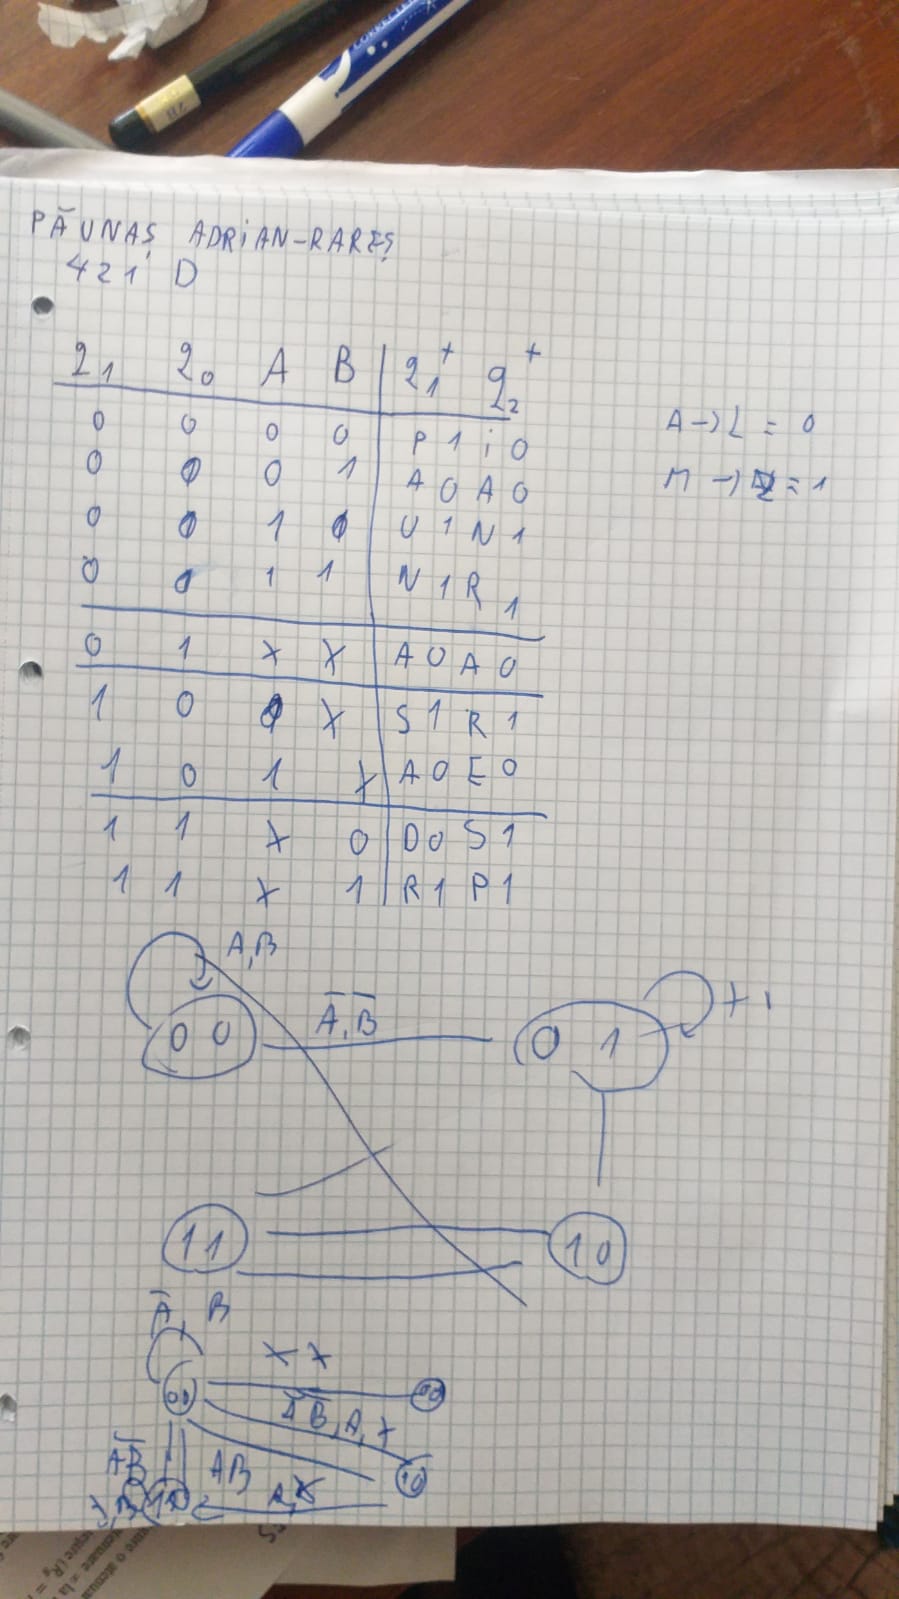 PĂUNAȘ ADRIAN-RAREȘ
421 D
q1 q0 A B q1+ q2+
0 0 0 0 P 1 i 0
0 0 0 1 A 0 A 0
0 0 1 0 U 1 N 1
0 0 1 1 N 1 R 1
0 1 X X A 0 A 0
1 0 0 X S 1 R 1
1 0 1 X A 0 E 0
1 1 X 0 D 0 S 1
1 1 X 1 R 1 P 1
A → L = 0
M → Z = 1
A,B
0 0
A̅,B̅
0 1
11
10
A̅, B
00
X X
A̅B̅, A, X
10
AB̅
AB